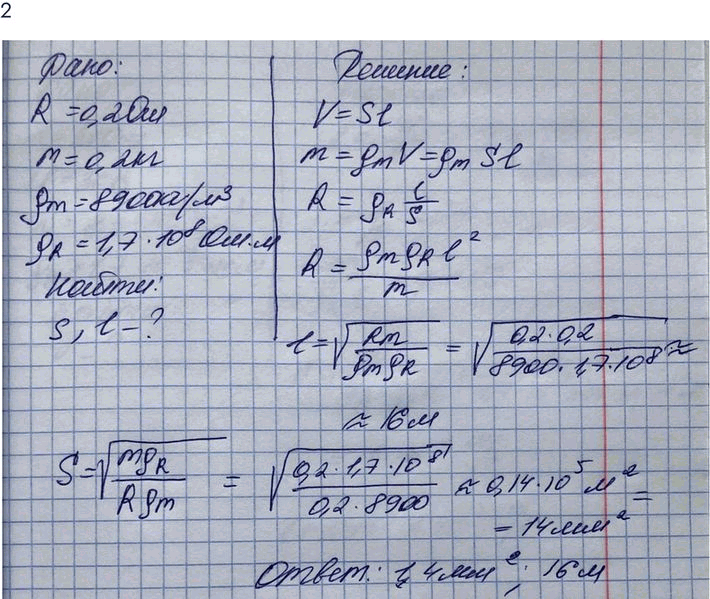 2
Дано:
R = 0,2 Ом
m = 0,2 кг
ρm = 8900 кг/м³
ρR = 1,7 · 10⁸ Ом · м
Найти:
S, l – ?
Решение:
V = Sl
m = ρmV = ρm Sl
R = ρR l/S
R = ρmρR l²/m
l = √(Rm/ρmρR) = √(0,2 · 0,2/8900 · 1,7 · 10⁸) ≈
≈ 16 м
S = √(mρR/Rρm) = √(0,2 · 1,7 · 10⁸/0,2 · 8900) ≈ 0,14 · 10⁵ м² =
= 14 мм²
Ответ: 1,4 мм²; 16 м